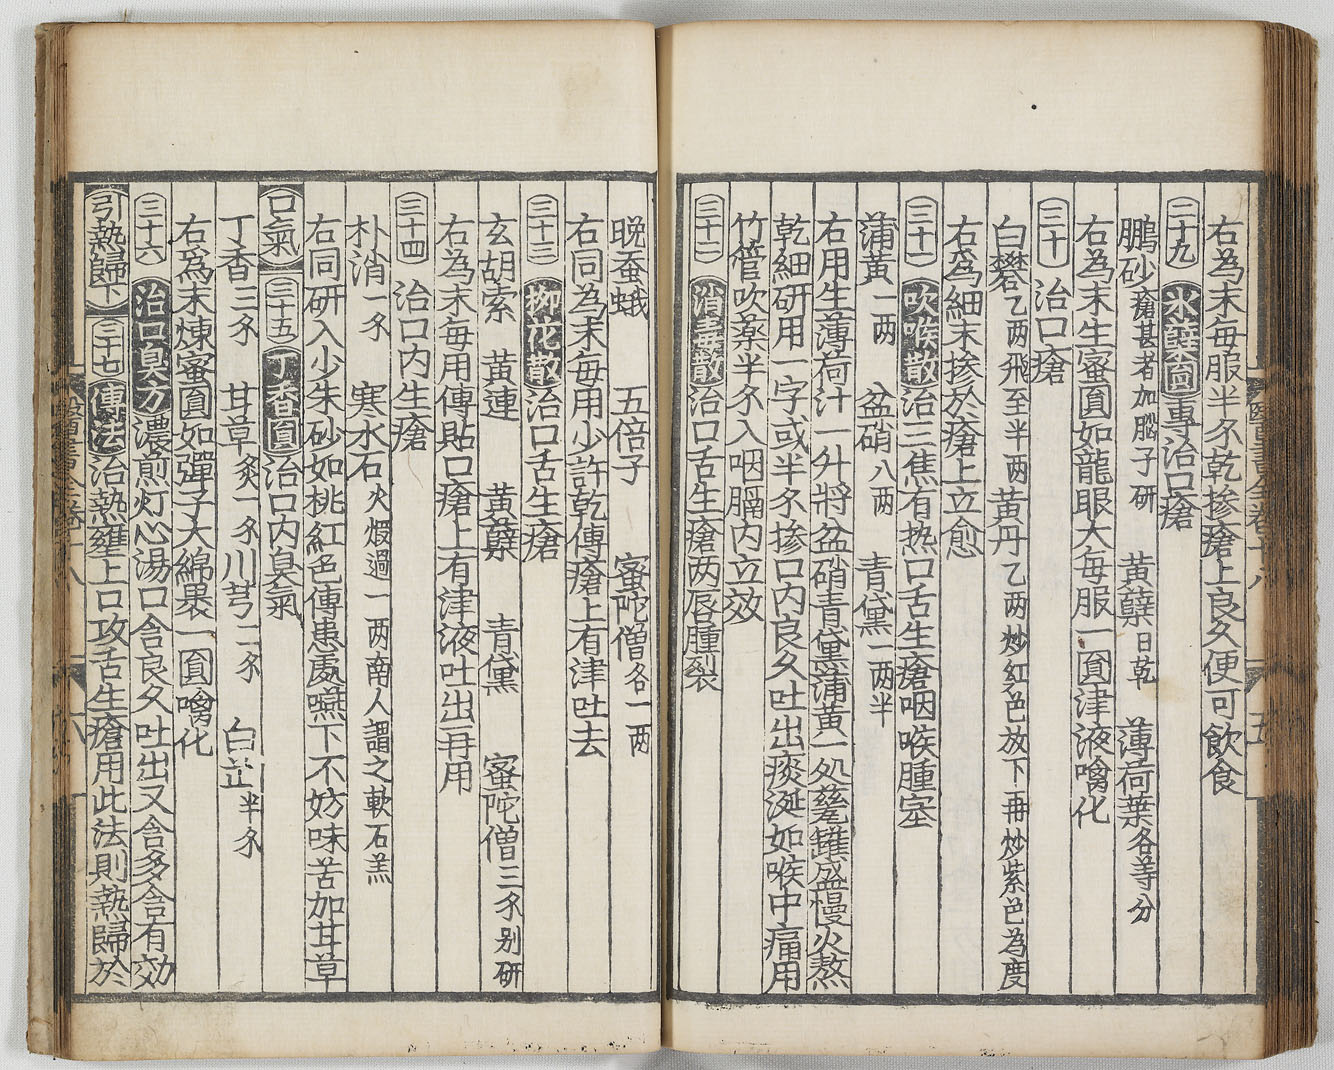 右為末每服半禾乾摻瘡上良久便可飲食
二十九 氷蘗圎 專治口瘡
鵬砂 瘡甚者加腦子研 黃蘗 日乾 薄荷葉 各等分
右為末生蜜圎如龍眼大每服一圎津液噙化
三十 治口瘡
白礬 乙两飛至半两 黃丹 乙两炒紅色放下再炒紫色為度
右為細末摻於瘡上立愈
三十一 吹喉散 治三焦有热口舌生瘡咽喉腫塞
蒲黃 一两 盆硝 八两 青黛 一两半
右用生薄荷汁一升將盆硝青黛蒲黃一処甆罐盛慢火熬
乾細研用一字或半禾摻口內良久吐出痰涎如喉中痛用
竹管吹薬半禾入咽膈內立效
三十二 消毒散 治口舌生瘡两唇腫裂
晚蚕蛾 五倍子 蜜陀僧 各一两
右同為末每用少許乾傅瘡上有津吐去
三十三 栁花散 治口舌生瘡
玄胡索 黃連 黃蘗 青黛 蜜陀僧 三禾别研
右為末每用傅貼口瘡上有津液吐出再用
三十四 治口內生瘡
朴消 一禾 寒水石 火煆過一两南人謂之軟石羔
右同研入少朱砂如桃紅色傅患處嚥下不妨味苦加甘草
口氣 三十五 丁香圎 治口內臭氣
丁香 三禾 甘草 炙一禾 川芎 二禾 白芷 半禾
右為末煉蜜圎如彈子大綿褁一圎噙化
三十六 治口臭方 濃煎灯心湯口含良久吐出又含多含有効
引熱歸下 三十七 傳法 治熱壅上口攻舌生瘡用此法則熱歸於